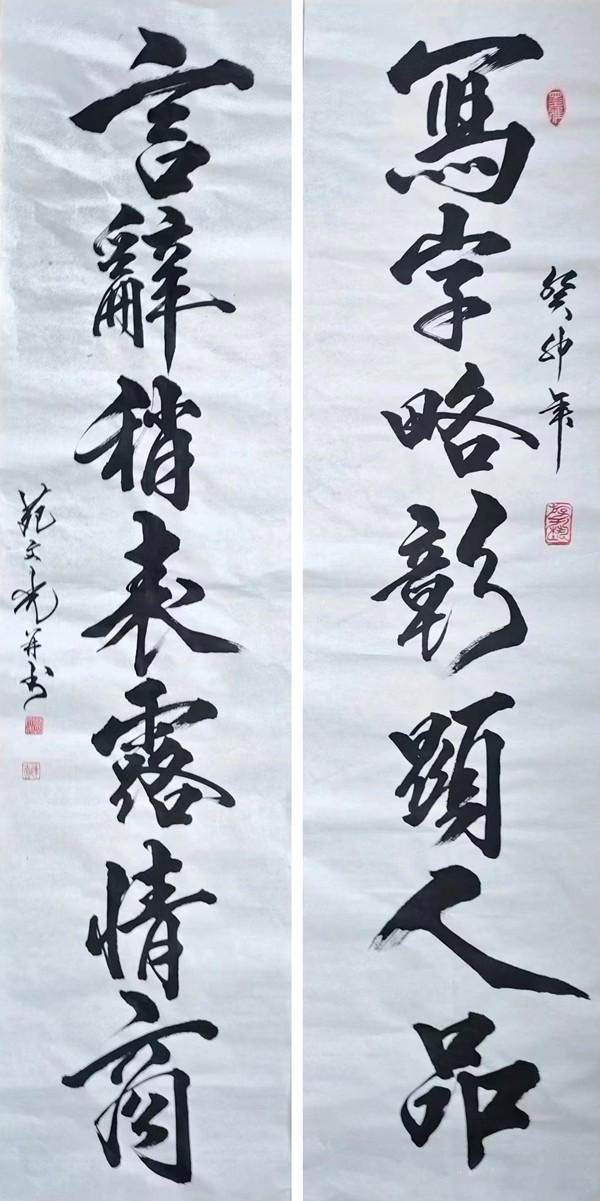 寫字略彰顯人品
癸卯年
言辭稍表露情商
文光并书